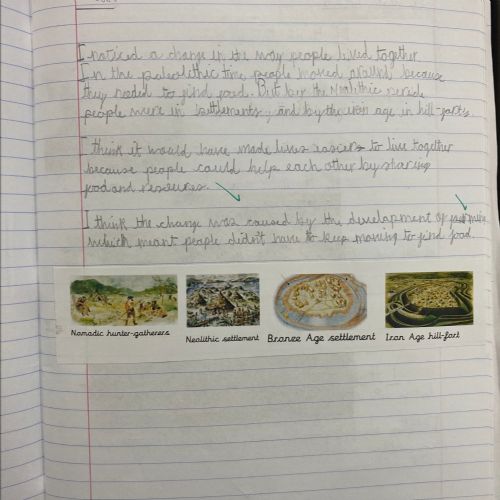 I noticed a change in the way people lived together
In the paleolithic time people moved around because
they needed to find food. But by the Nealithic periode
people were in settlements, and by the iron age in hill-forts.
I think it would have made lives easiers to live together
because people could help each other by sharing
food and resources.
I think the change was caused by the development of
which meant people didn't have to keep moving to find food.
Nomadic hunter-gatherers
Neolithic settlement
Bronze Age settlement
Iron Age hill-fort